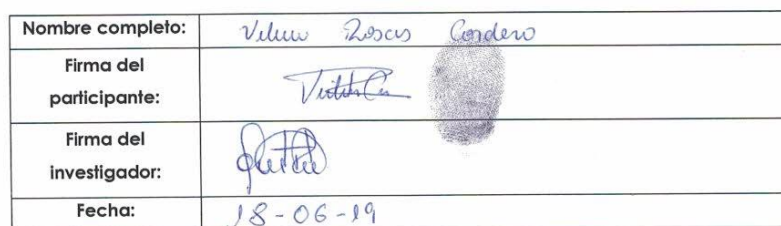 Nombre completo: Rosas Cordero
Firma del
participante:
Firma del
investigador:
Fecha: 18-06-19